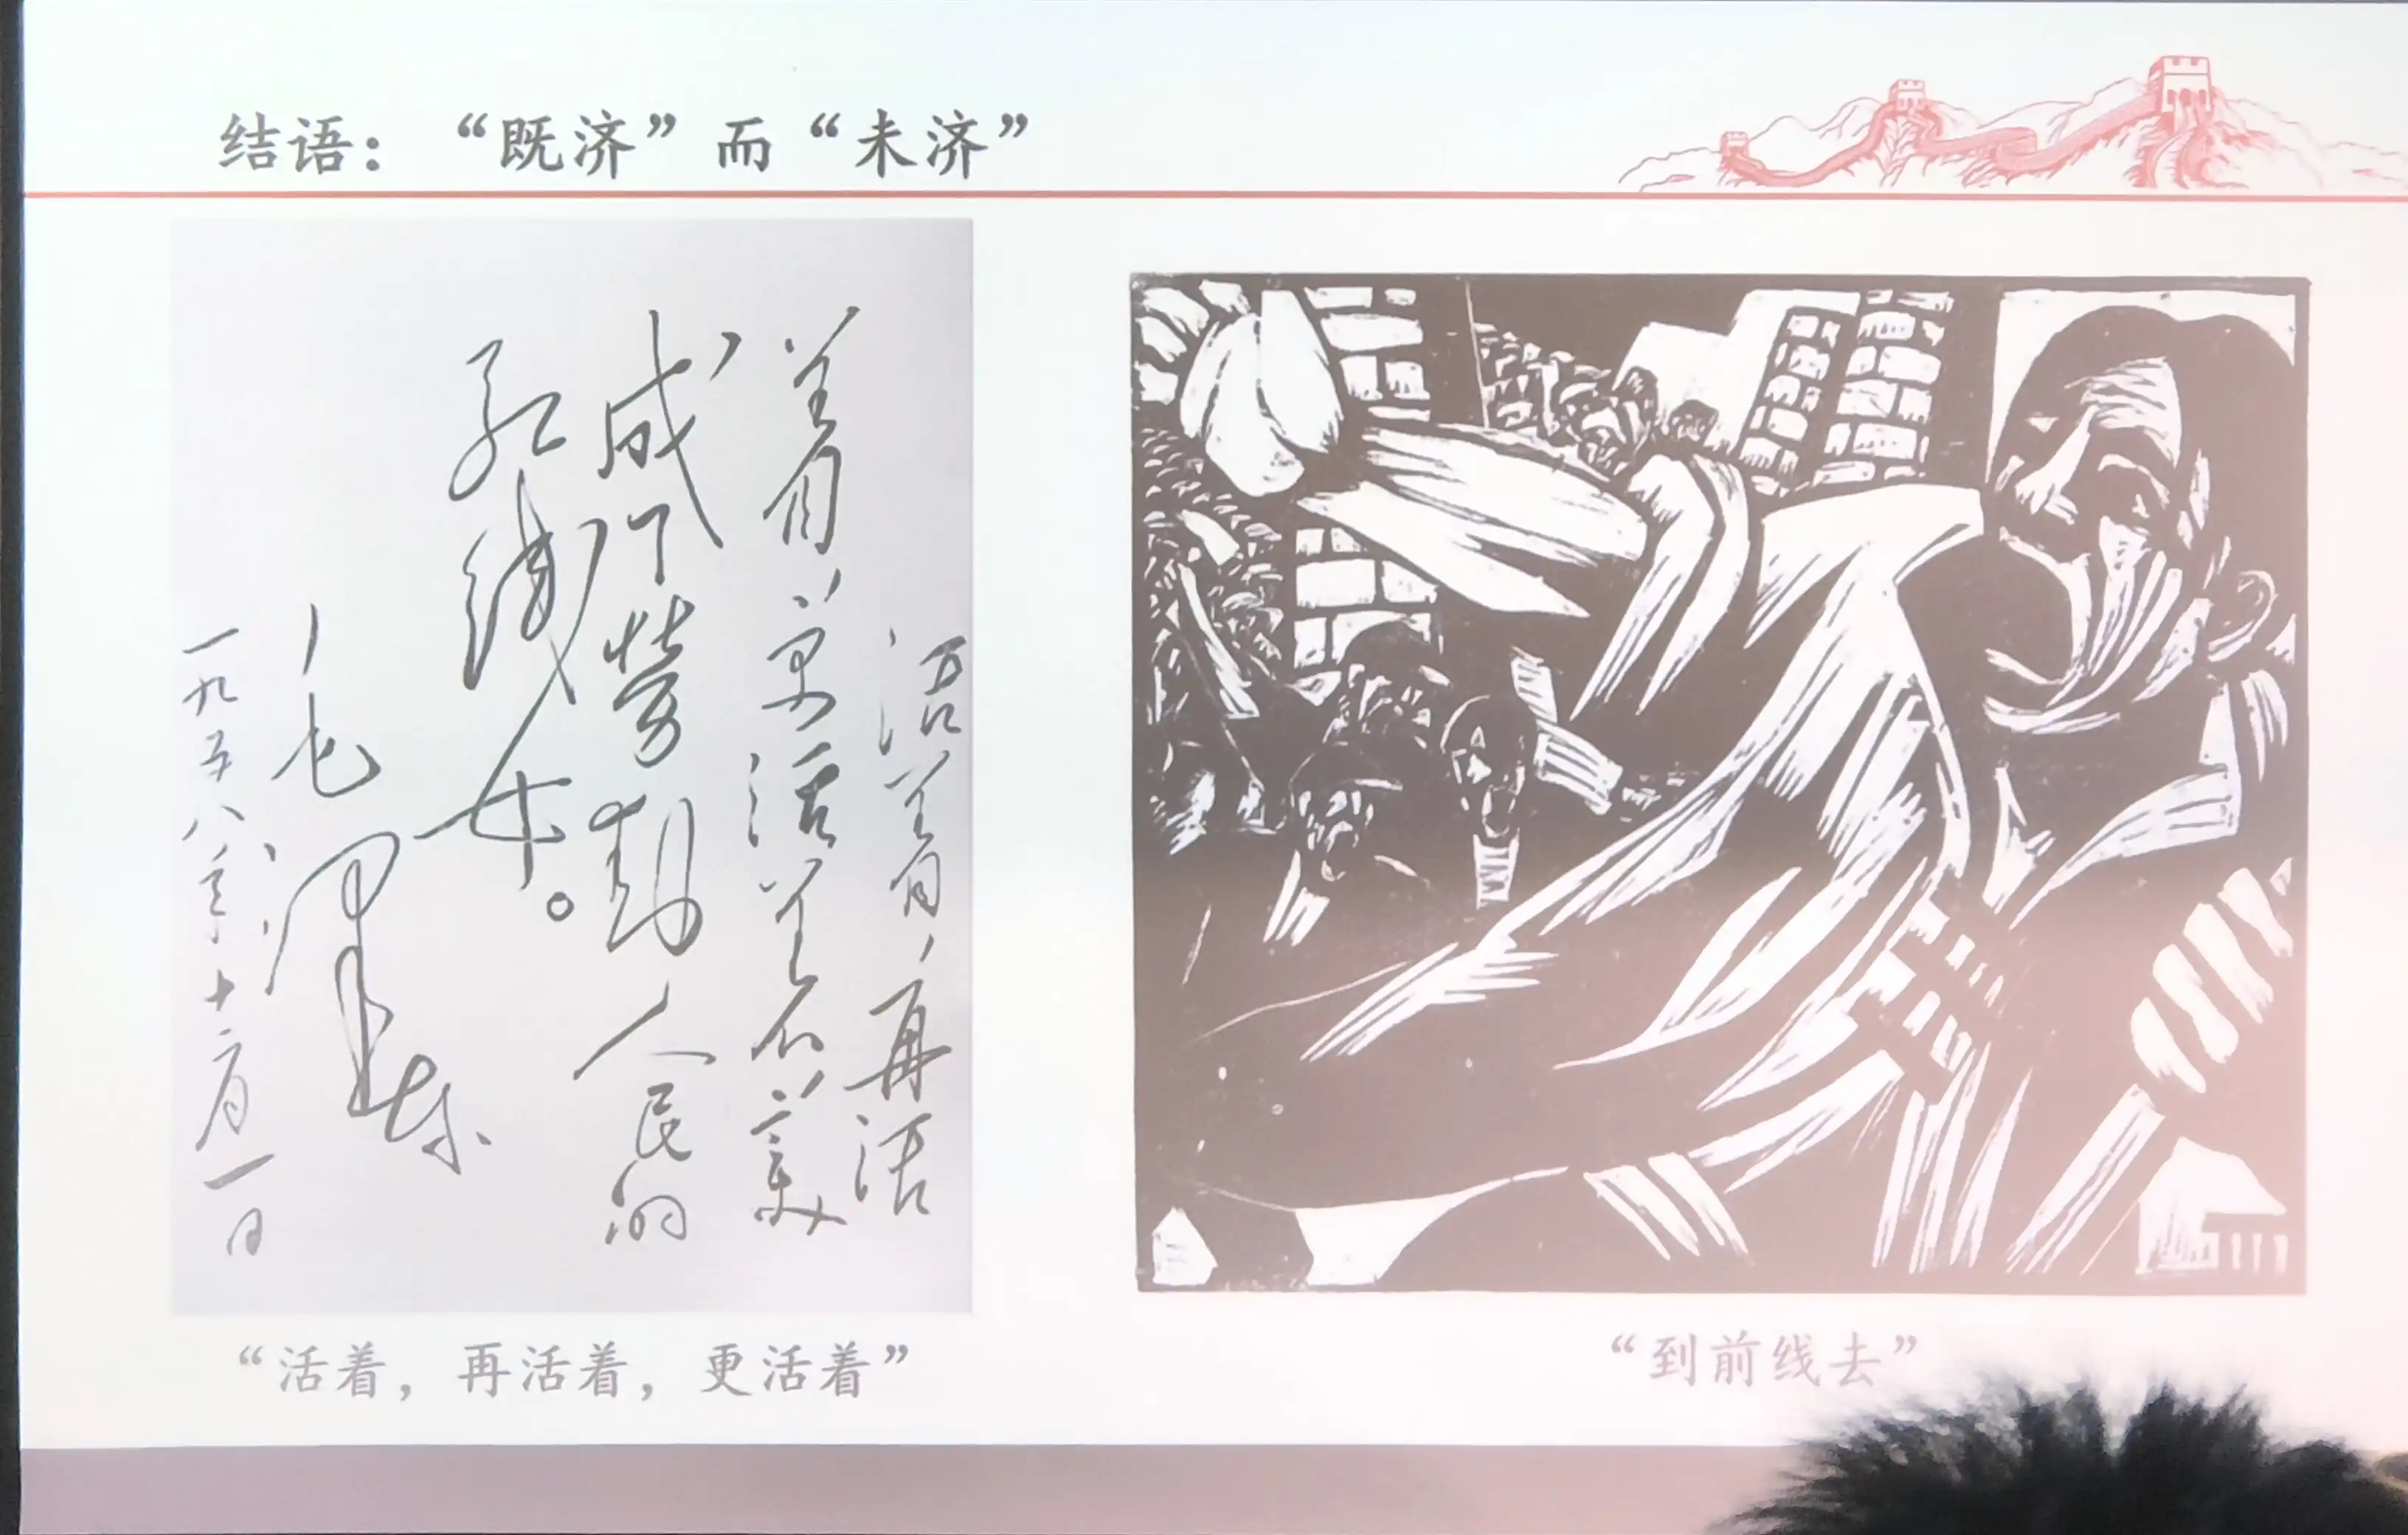 结语：“既济”而“未济”
活着，再活
着，更活着，变
成了勞動人民的
红线女。
毛泽东
一九五八年十二月一日
“活着，再活着，更活着”
“到前线去”